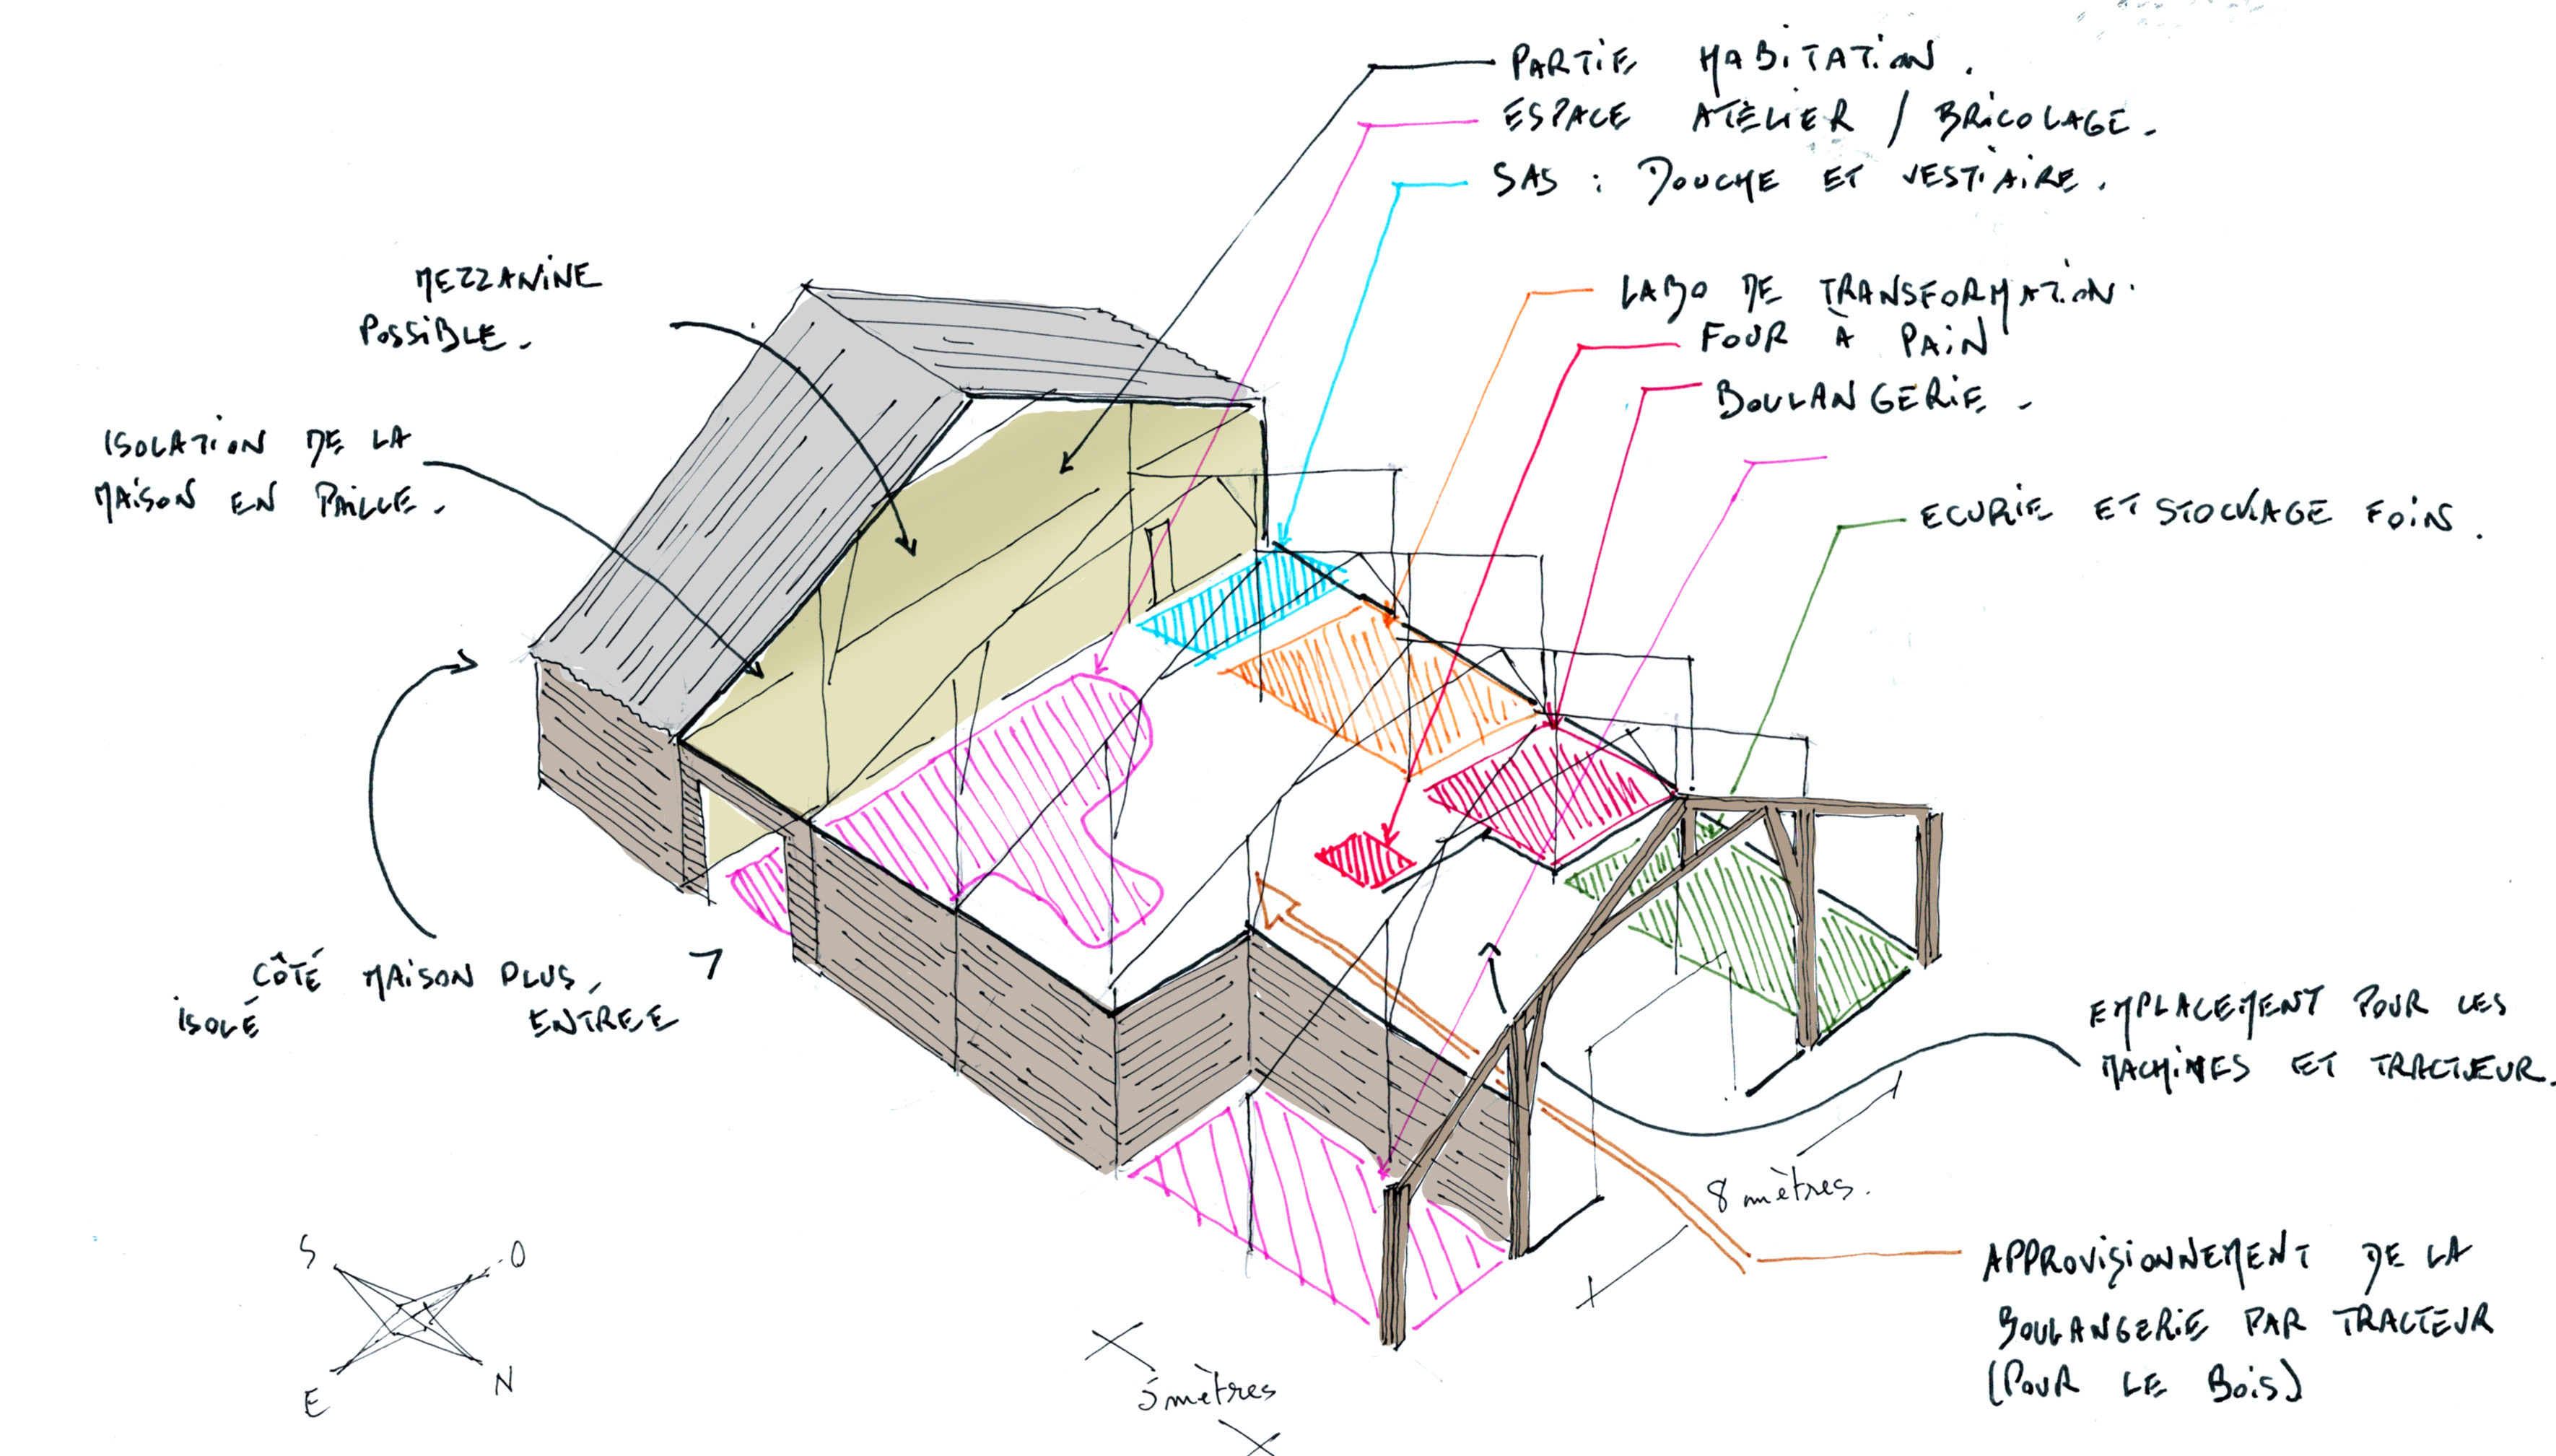 PARTIE HABITATION.
ESPACE ATELIER / BRICOLAGE.
SAS : DOUCHE ET VESTIAIRE.
MEZZANINE
POSSIBLE.
LABO DE TRANSFORMATION.
FOUR À PAIN
BOULANGERIE.
ISOLATION DE LA
MAISON EN PAILLE.
ECURIE ET STOCKAGE FOIN.
CÔTÉ MAISON PLUS
ISOLÉ
ENTRÉE
EMPLACEMENT POUR LES
MACHINES ET TRACTEUR.
8 mètres.
5 mètres
APPROVISIONNEMENT DE LA
BOULANGERIE PAR TRACTEUR
(POUR LE BOIS)
S O
E N